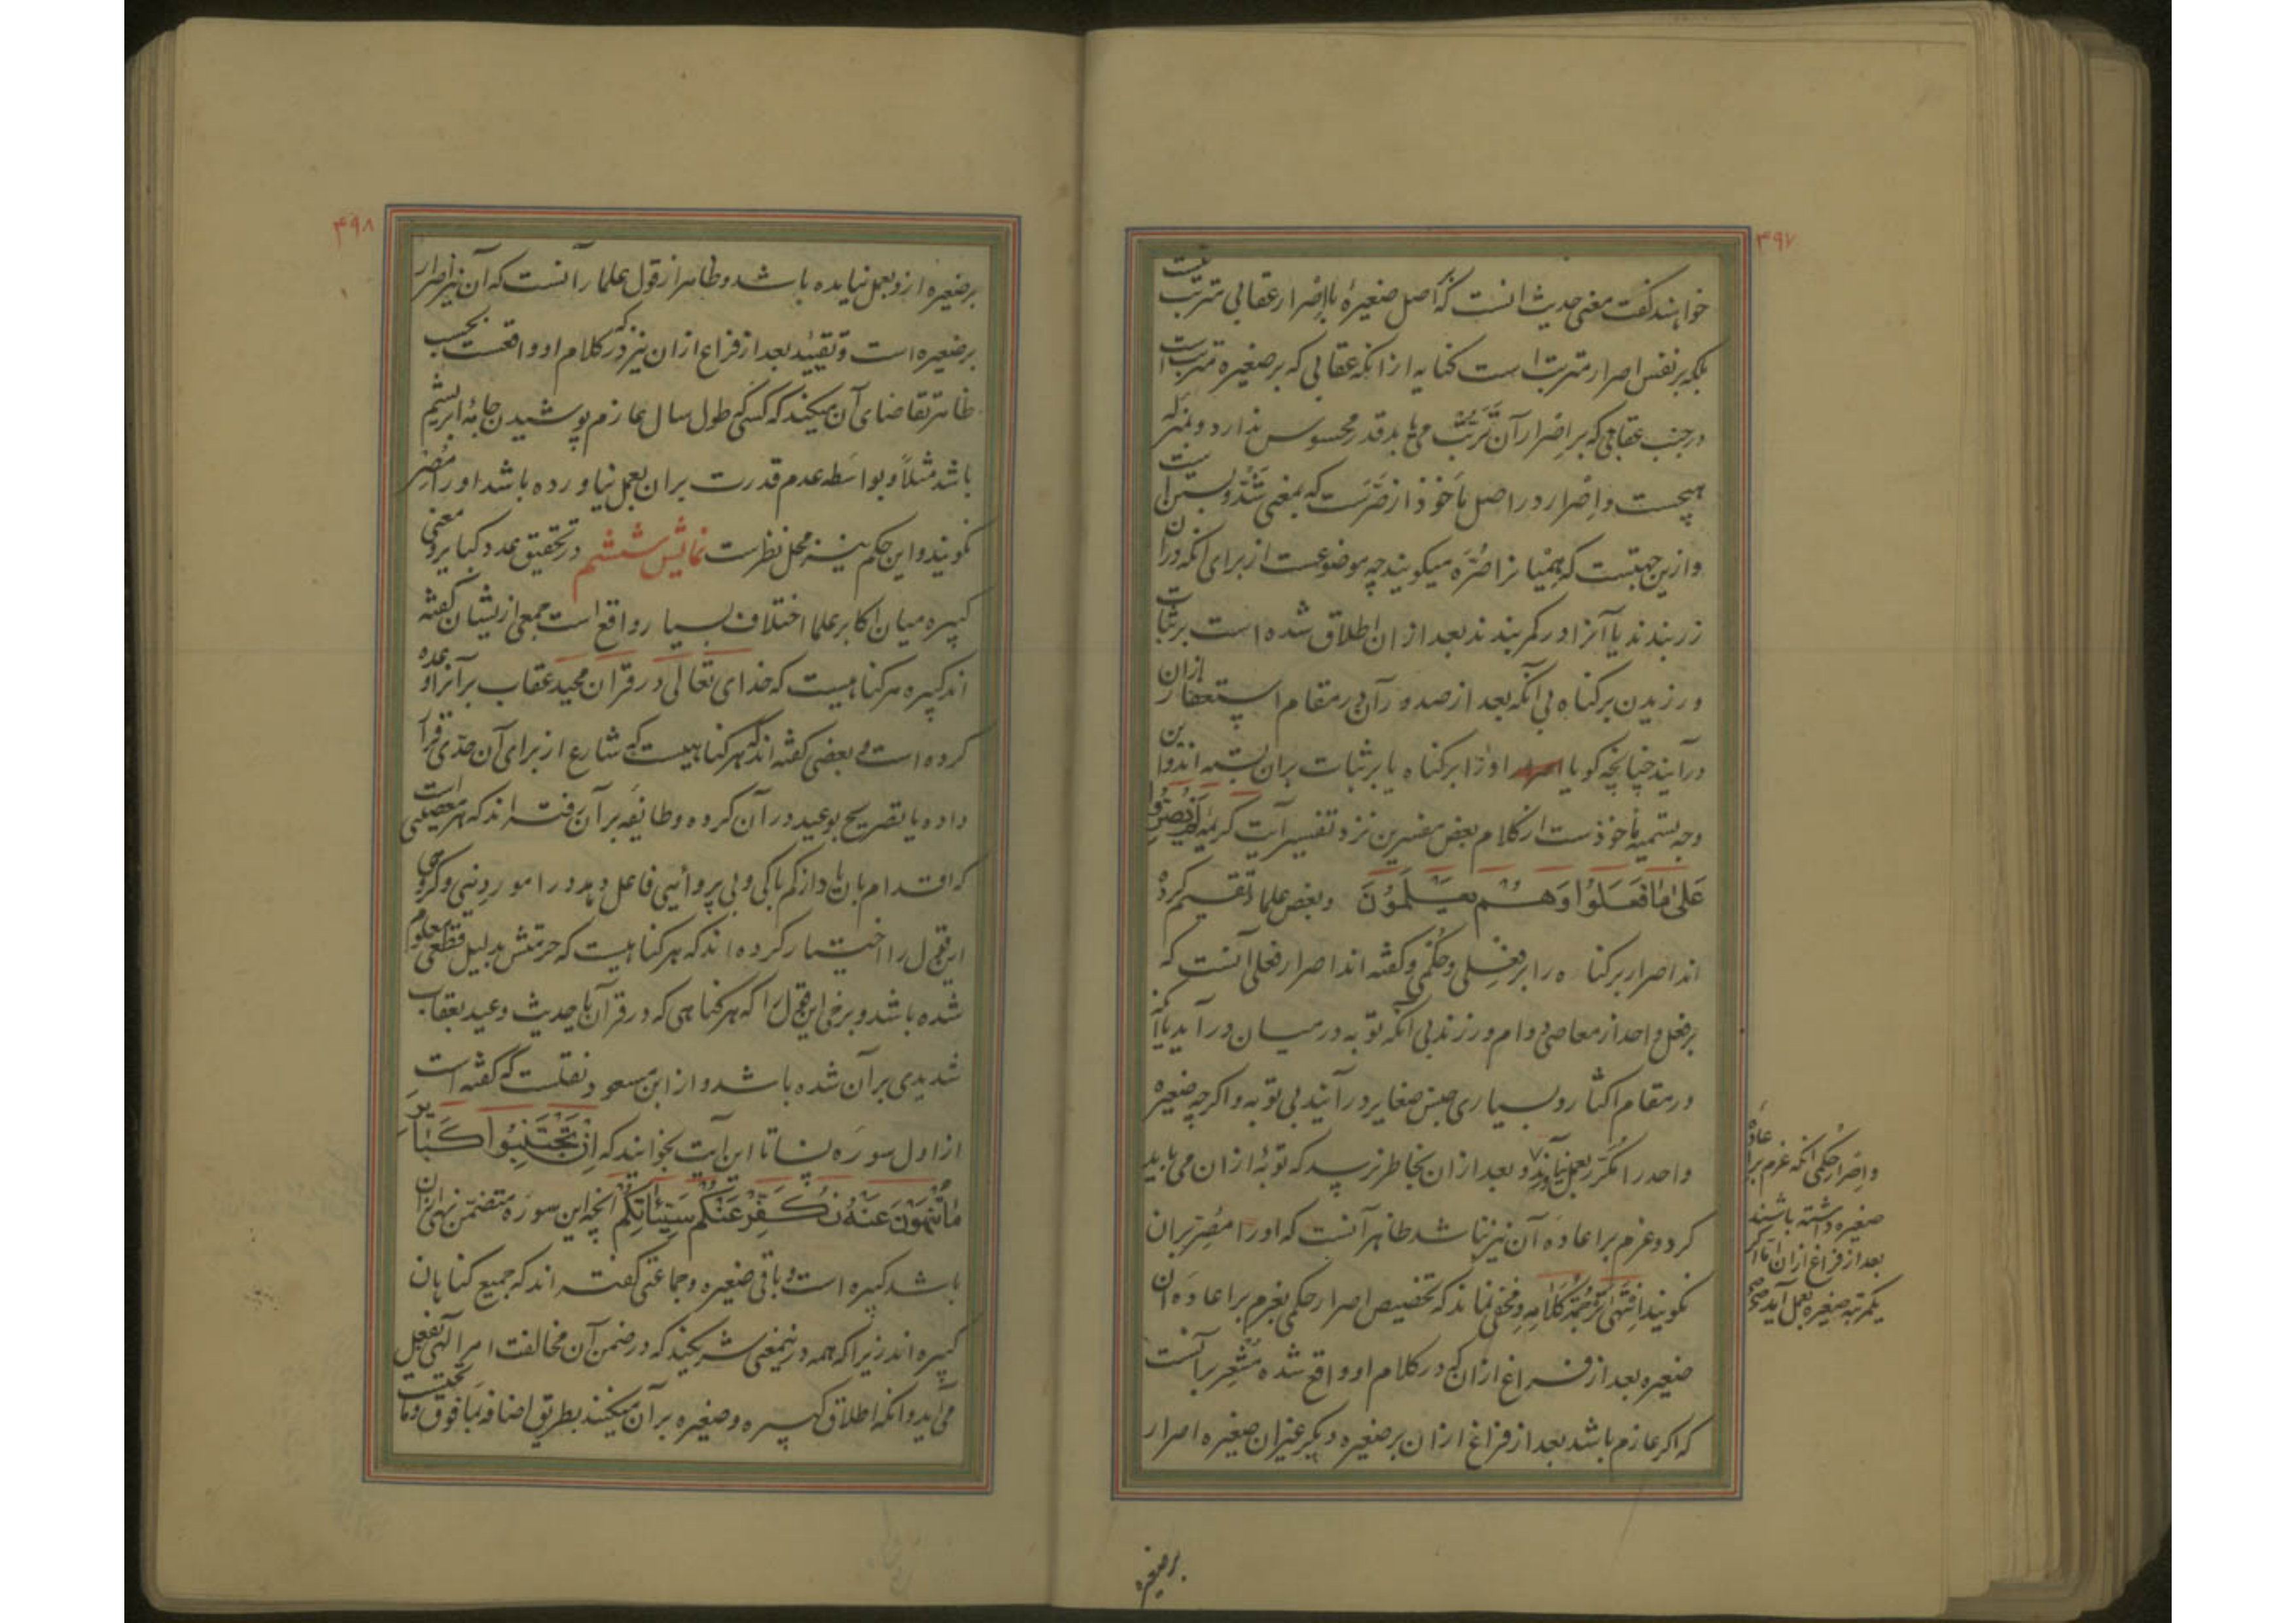 ۴۹۷
خواهند گفت معنی حدیث انست که اصل صغیرهٔ بااِصْرار عقابی مترتب نیست
بلکه بر نفس اصرار مترتب است کنایه از انکه عقابی که بر صغیره مترتبست
در جنب عقابی که بر اِصْرار آن تَرَتُّب می یابد قدر محسوس ندارد و بمنزله
هیچست و اِصْرار در اصل مأخوذ از صَرّست که بمعنی شَدّ و بستن است
و ازین جهتست که همْیانرا صُرّه میکویند چه موضوعست از برای انکه دران
زر بندند یا آنرا در کمر بندند بعد از ان اطلاق شده است بر ثبات
ورزیدن بر کناه بی آنکه بعد از صدور آن در مقام استغفار ازان
درآیند چنانچه کویا او را بر کناه یا بر ثبات بران بسته اند و این
وجه تسمیه مأخوذست از کلام بعض مفسرین نزد تفسیر آیت کریمه لَم یُصِرُّوا
عَلیٰ مٰا فَعَلُوا وَهُــم یَعــلَمُونَ وبعض علما تقسیم کرده
اند اصرار بر کناه را بر فِعْــلی و حُکْمی و کفته اند اصرار فعلی آنست که
بر فعل واحد از معاصی دوام ورزند بی آنکه توبه در میــان درآید یا آنکه
در مقام اکثار و بسیاری جنس صغایر درآیند بی توبه و اکرچه صغیره
واحد را مُکَرّر بعمل نیاوَرَنْد و بعد از ان بخاطر نرسد که توبهٔ ازان می باید
کرد و عزم بر اعادهٔ آن نیز نباشد ظاهر آنست که او را مُصِرّ بران
نکویند اِنْتَهیٰ تَرْجُمَة کَلامِهِ و مخفی نماند که تخصیص اصرار حکمی بعزم بر اعادهٔ ان
صغیره بعد از فــراغ ازان که در کلام او واقع شده مُشْعِر بآنست
که اکر عازم باشد بعد از فراغ ازان بر صغیره دیکر غیر ان صغیره اصرار
و اِصْرار حُکْمی انکه عزم بر اعادهٔ
صغیره داشته باشند
بعد از فراغ ازان اما اکر
یکمرتبه صغیره بعمل آید صح
بر صغیره
۴۹۸
بر صغیره ازو بعمل نیایده باشد و ظاهر از قول علما را آنست که آن نیز اصرار
بر صغیره است و تقیید بعد از فراغ ازان نیز که در کلام او واقعست بحسب
ظاهر تقاضای آن میکند که کسی که طول سال عازم پوشیدن جامهٔ ابریشم
باشد مثلاً و بواسطه عدم قدرت بران بعمل نیاورده باشد اورا مُصِرّ
نکویند و این حکم نیــز محل نظرست نمایش ششم در تحقیق عدد کبایر و معنی
کبیره میان اکابر علما اختلاف بسیار واقع است جمعی ازیشان کفته
اند کبیره هر کناهیست که خدای تعالی در قرآن مجید عقاب بر آنرا وعده
کرده است و بعضی کفته اند که هر کناهیست که شارع از برای آن حدّی قرار
داده یا تصریح بوعید در آن کرده و طائفه بر آن رفته اند که هر معصیتی است
که اقدام بان از کم باکی و بی پروائیی فاعل دهد در امور دینی و کروهی
این قول را اختیــار کرده اند که هر کناهیست که حرمتش بدلیل قطعی معلوم
شده باشد و برخی این قول را که هر کناهی که در قرآن یا حدیث وعید بعقاب
شدیدی بر آن شده باشد و از ابن مسعود نقلست که کفته است
از اول سوره نسا تا این آیت بخوانند که اِنْ تَجْتَنِبُوا کَبٰائِرَ
مٰا تُنْهَوْنَ عَنْهُ نُکَفِّرْ عَنْکُم سَیِّئٰاتِکُم انچه این سوره متضمن نهی ازان
باشد کبیره است و باقی صغیره و جماعتی کفته اند که جمیع کناهان
کبیره اند زیرا که همه درینمعنی شریکند که در ضمن آن مخالفت امر الهی بفعل
می آید و انکه اطلاق کبیره و صغیره بر آن میکنند بطریق اضافه بما فوق و ما تحتست